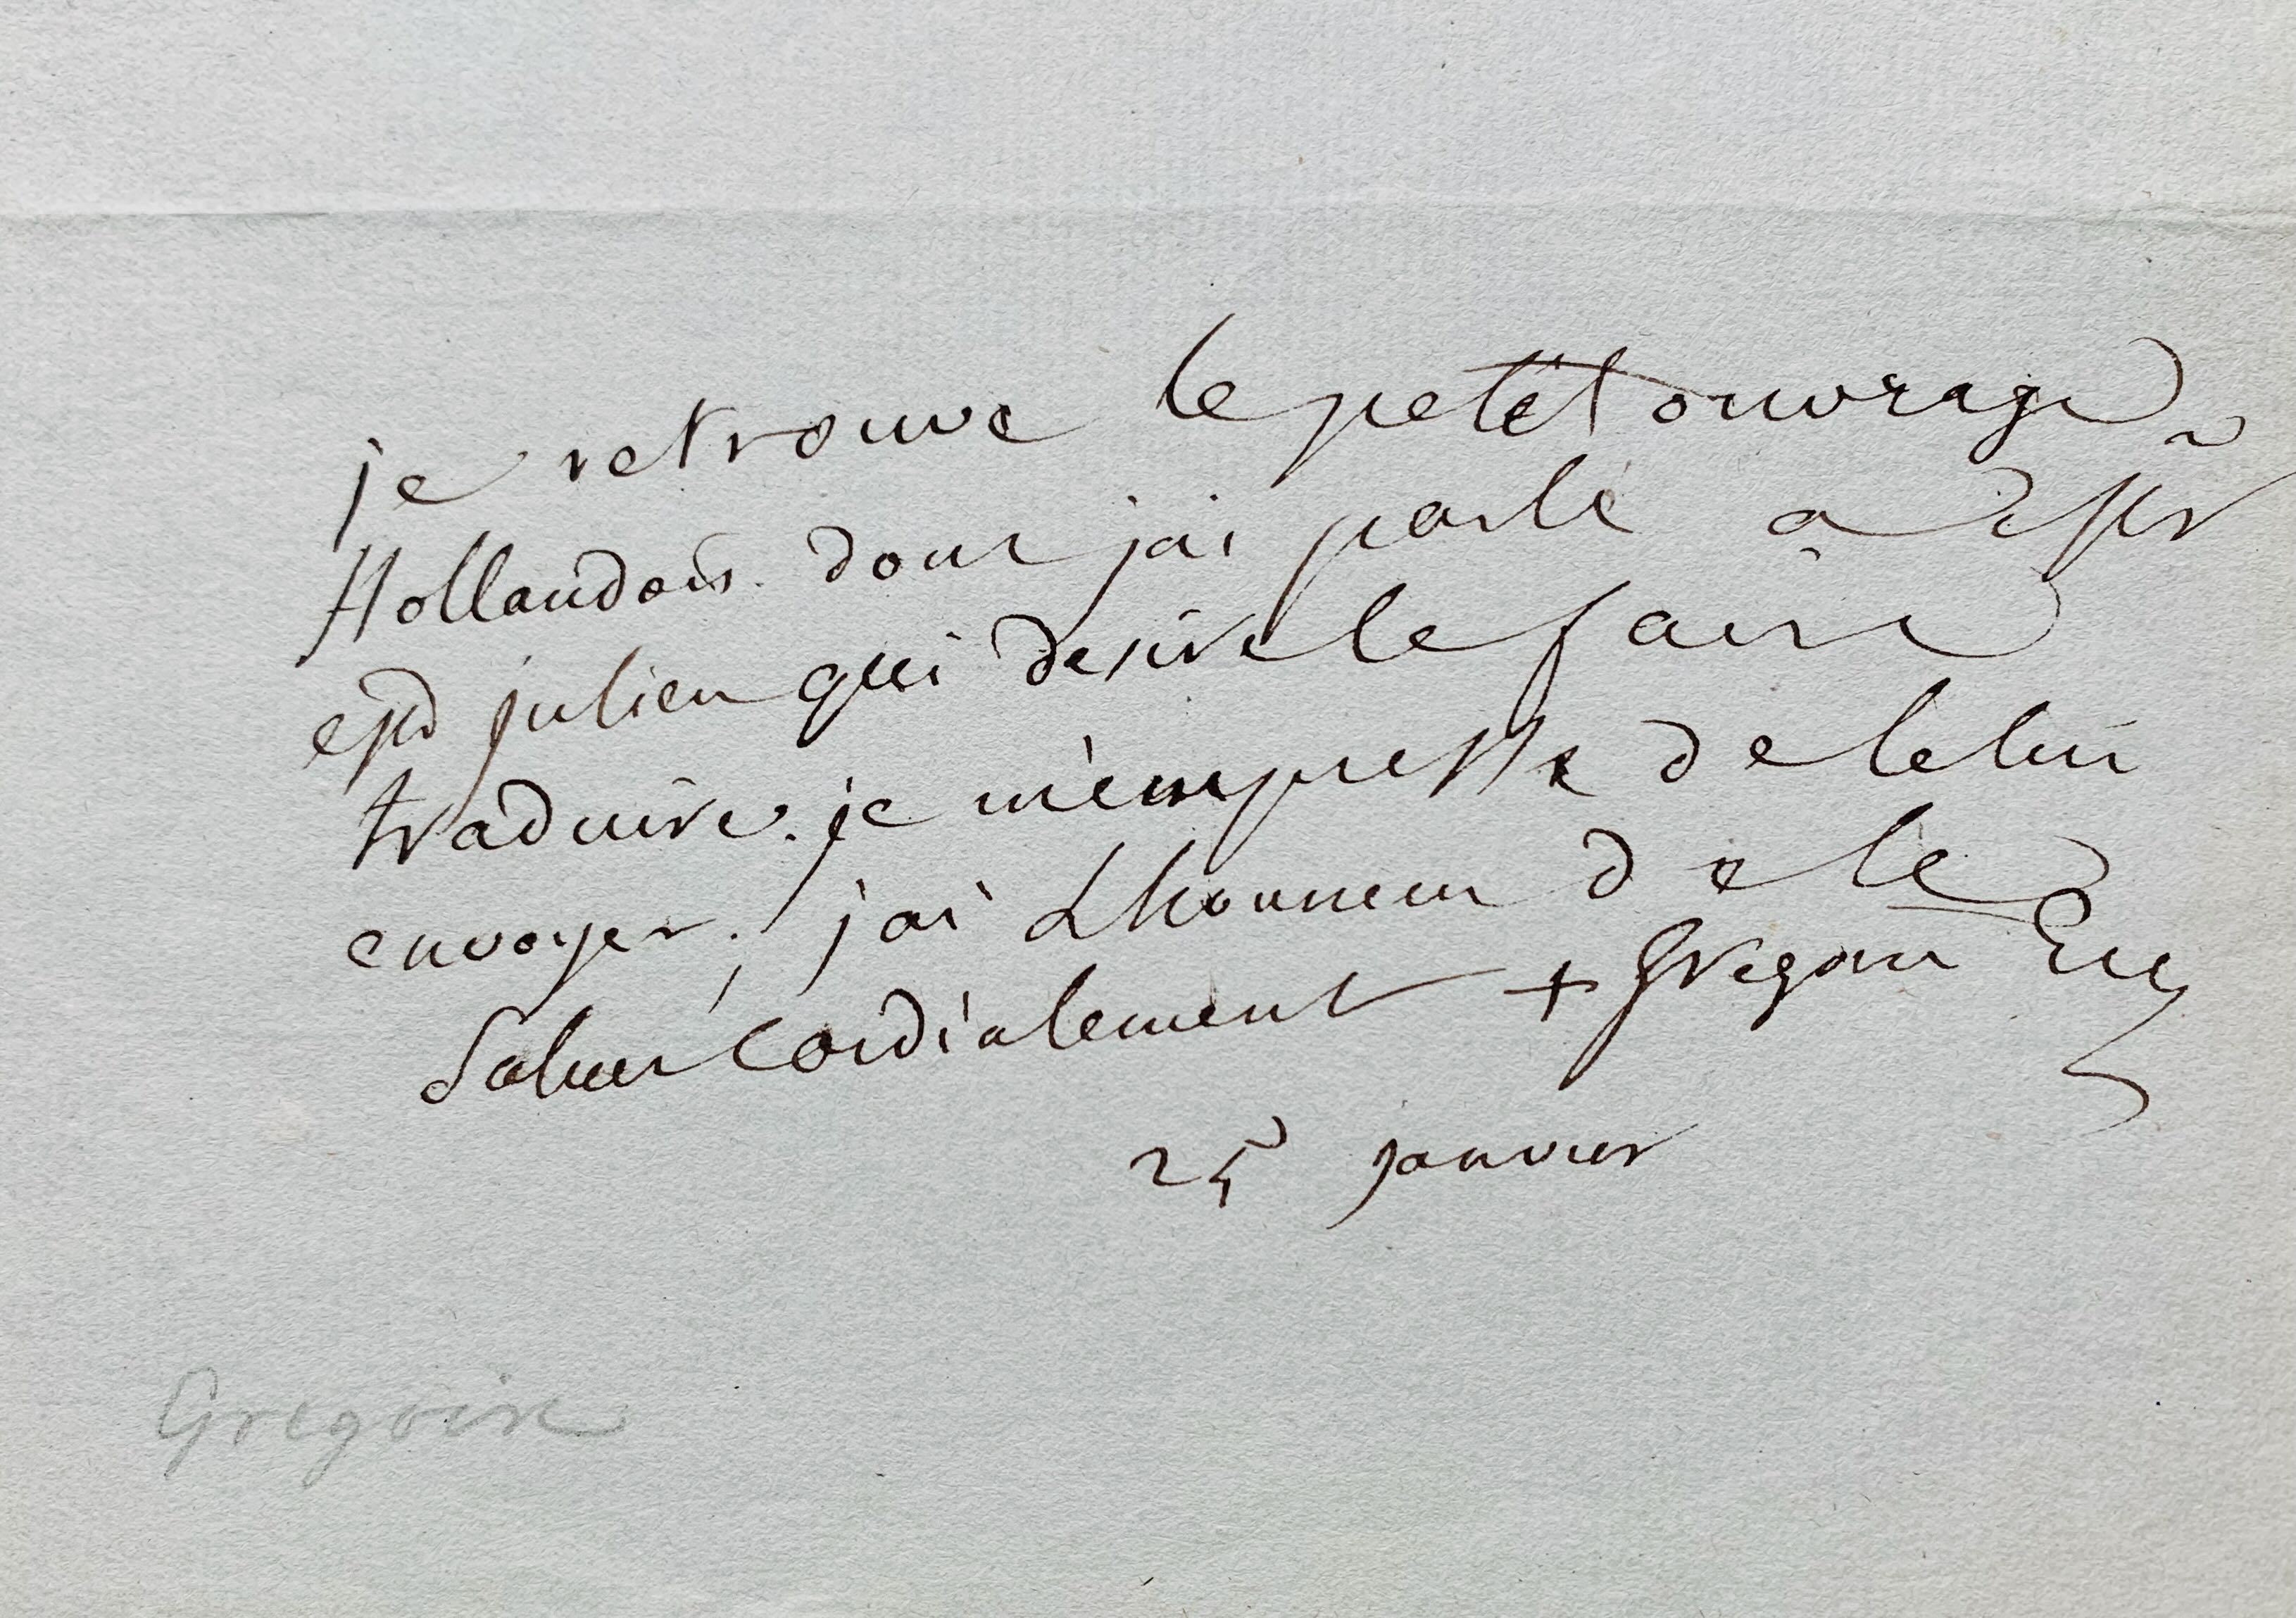 je retrouve le petit ouvrage
Hollandois dont j'ai parlé a
julien qui desire le faire
traduire. je m'empresse de le lui
envoyer, j'ai Lhonneur de le
Saluer Cordialement + Gregoire
25 janvier
Gregoire